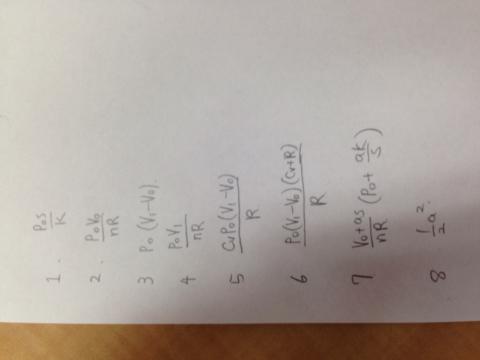 1. P₀S/K
2. P₀V₀/nR
3 P₀(V₁-V₀).
4 P₀V₁/nR
5 CvP₀(V₁-V₀)/R
6 P₀(V₁-V₀)(Cv+R)/R
7 V₀+as/nR (P₀+ak/S)
8 1/2 a².